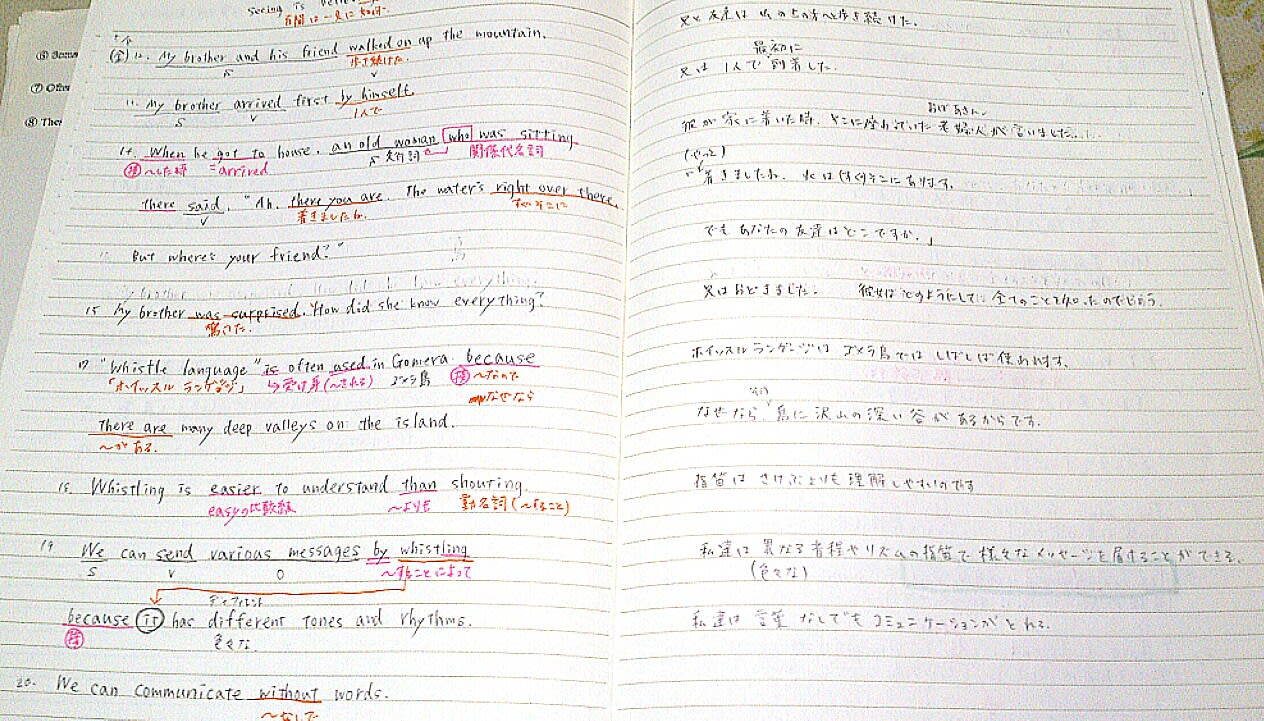 seeing is
百聞は一見に如かず.
⑥ Some
⑦ Ofte
⑧ Ther
12. My brother and his friend walked on up the mountain.
S 歩き続けた. V
兄と友達は山の上の方へと歩き続けた.
My brother arrived first by himself.
S V 1人で
最初に
兄は 1人で 到着した.
14. When he got to house, an old woman who was sitting
接 〜した時 =arrived S 先行詞 関係代名詞
おばあさん
彼が家に着いた時、そこに座っていた老婦人が言いました...
there said, "Ah, there you are. The water's right over there.
V 着きましたね. すぐそこに
(やっと)
着きましたね. 水はすぐそこにあります.
But where's your friend?"
でもあなたの友達はどこですか.」
15 My brother was surprised. How did she know everything?
驚いた.
兄はおどろきました. 彼女はどのようにして全てのことを知ったのでしょう.
17 "Whistle language" is often used in Gomera because
「ホイッスル ランゲージ」 受け身(〜される) ゴメラ島 接 〜なので
なぜなら
ホイッスルランゲージは ゴメラ島では しばしば使われます.
There are many deep valleys on the island.
〜がある.
なぜなら、島に沢山の深い谷があるからです.
18. Whistling is easier to understand than shouting.
easyの比較級 〜よりも 動名詞(〜すること)
指笛は さけぶよりも理解しやすいのです
19 We can send various messages by whistling
S V O 〜することによって
私達は 異なる音程やリズムの指笛で 様々なメッセージを届けることができる.
(色々な)
ディファレント
because it has different tones and rhythms.
接 色々な
私達は 言葉 なしでもコミュニケーションがとれる.
20. We can communicate without words.
〜なしで